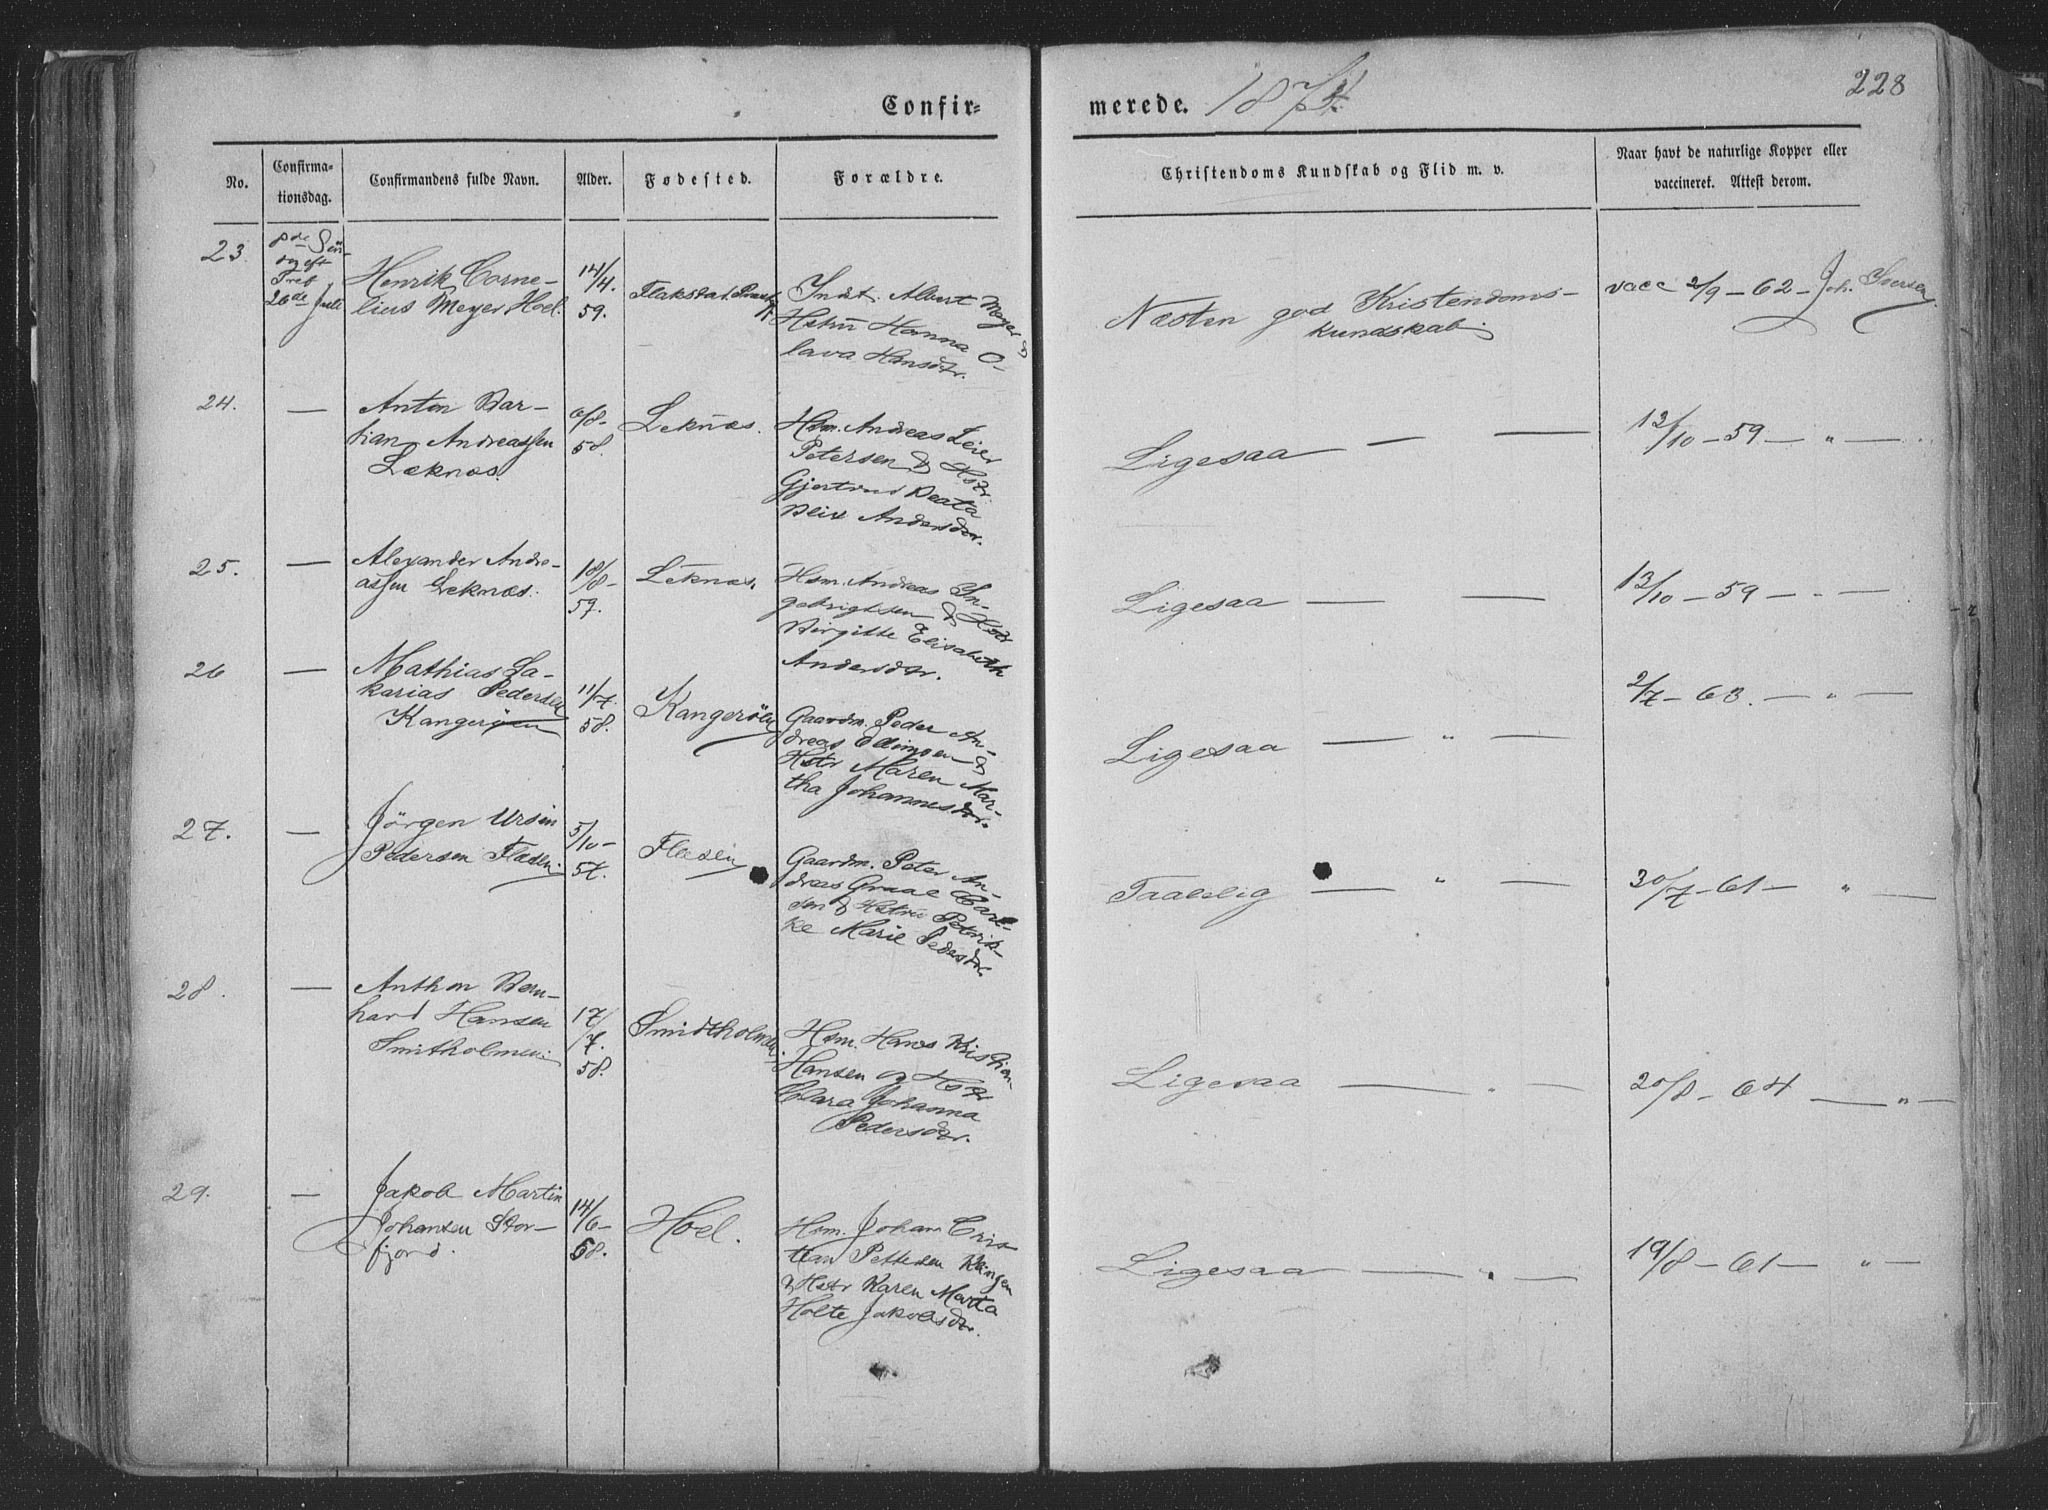 228
Confir-
merede. 1874.
No.
Confirma-
tionsdag.
Confirmandens fulde Navn.
Alder.
Fødested.
Forældre.
Christendoms Kundskab og Flid m. v.
Naar havt de naturlige Kopper eller
vaccineret. Attest derom.
23.
8de Søn-
dag eft
Tref
26de Juli
Henrik Corne-
lius Meyer Hoel.
14/4.
59.
Flakstad
Indst. Albert Meyer &
Hstru Hanna O-
lava Hansdtr.
Næsten god Kristendoms-
kundskab.
vacc 2/9 - 62 - Joh. Iversen
24.
—
Anton Bar-
tian Andreassen
Leknæs.
6/8-
58.
Leknæs.
Hsm. Andreas Leier
Petersen & Hstr.
Gjertrud Beata
Blix Andersdtr.
Ligesaa — —
13/10 - 59 - „ —
25.
—
Alexander Andre-
assen Leknæs.
18/8-
59.
Leknæs.
Hsm. Andreas In-
gebrigtsen & Hstr
Birgitte Elisabeth
Andersdtr.
Ligesaa — —
13/10 - 59 - „ —
26
—
Mathias Sa-
karias Pedersen
Kangerøen
11/7.
58.
Kangerøen
Gaardm. Peder An-
dreas Ellingsen &
Hstr Maren Mar-
tha Johannesdtr.
Ligesaa — „ —
2/7 - 63. — „ —
27.
—
Jørgen Ursin
Pedersen Flæsen.
5/10-
57.
Flæsen
Gaardm. Peter An-
dreas Graae Carl-
sen & Hstru Petrik-
ke Marie Pedersdtr.
Taalelig — „ —
30/7 - 61 — „ —
28.
—
Anthon Bern-
hard Hansen
Smitholmen.
17/7.
58.
Smidtholmen.
Hsm. Hans Kristian
Hansen og Hstr
Clara Johanna
Pedersdtr.
Ligesaa — „ —
20/8 - 64 — „ —
29.
—
Jakob Martin
Johansen Stor-
fjord.
14/6-
58.
Hoel.
Hsm. Johan Cris-
tian Pettersen Klingen
& Hstr Karen Marta
Holte Jakobsdtr.
Ligesaa — „ —
19/8 - 61 — „ —